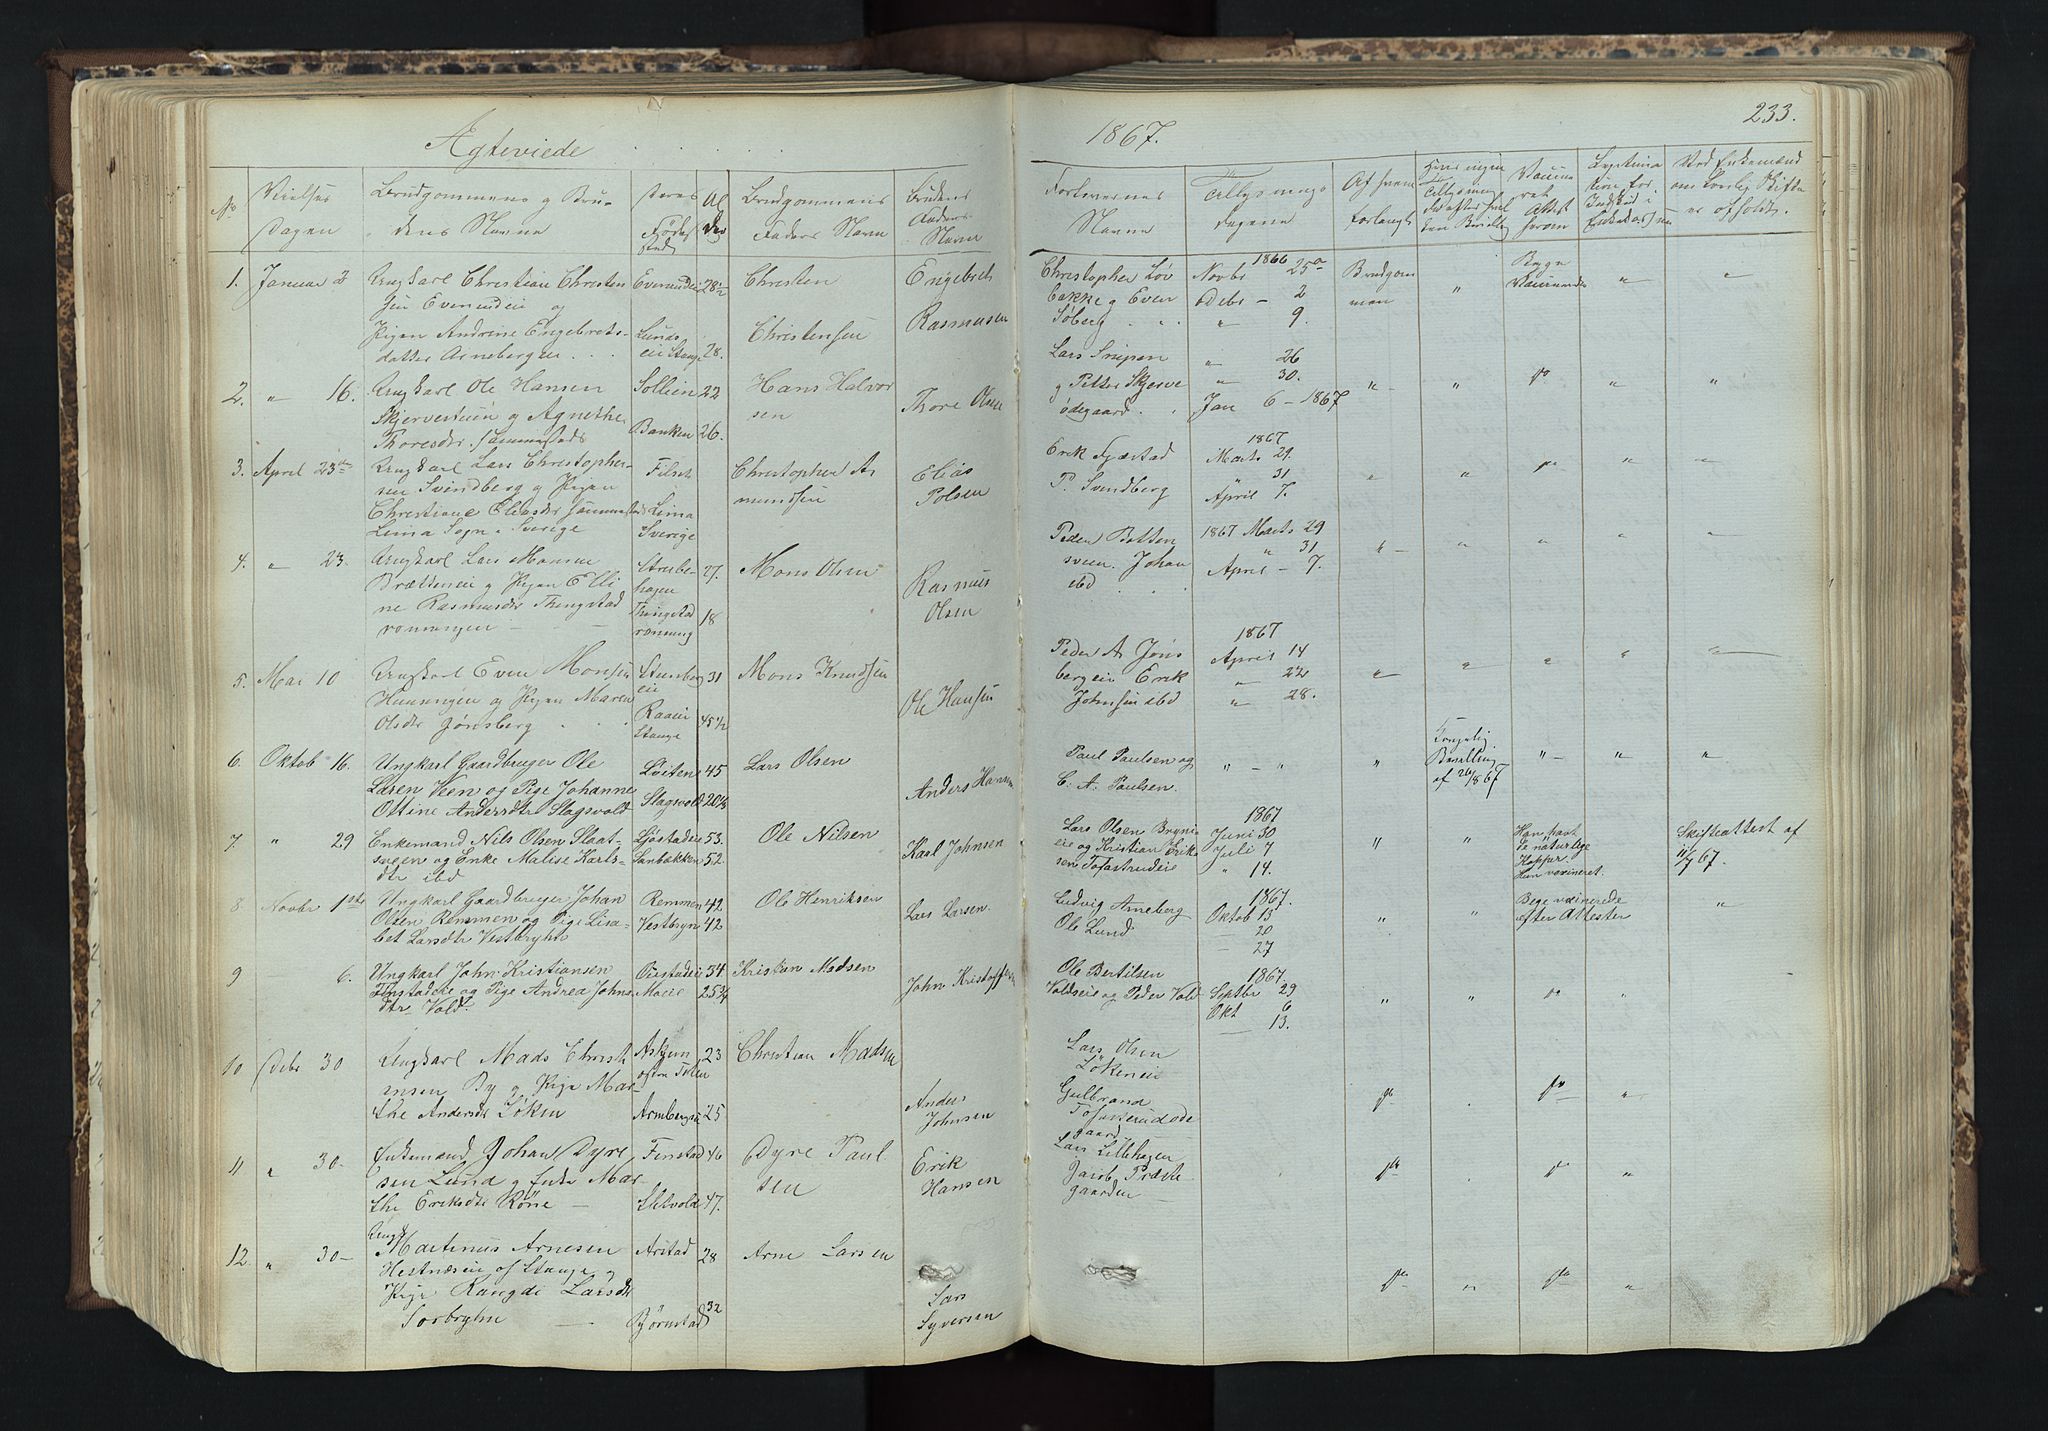 233.
Ægteviede
1867.
No
Vielses
Dagen
Brudgommens og Bru-
dens Navne
Deres
Føde-
sted
Al
der
Brudgommens
Faders Navn
Brudens
Faders
Navn
Forlovernes
Navne
Tillysnings
dagene
Af hvem
forlangt
Ved Enkemænd
om lovlig Skifte
er afholdt.
1. Januar 2
Ungkarl Christian Christen
sen Evenrudeie og
Pigen Andrine Engebrets-
datter Arnebergeie
28½
28.
Christen
Christensen
Engebret
Rasmusen
Christopher Løv
bakke og Even
Søberg
1866
Novbr 25de
Debr - 2
" 9.
Brudgom
men
Begge
Vaccinerede
2. " 16.
Ungkarl Ole Hansen
Skjervestuen og Agnethe
Thoresdtr. sammesteds
Sollien 22
Banken 26.
Hans Halvor
sen
Thore Olsen
Lars Snipen
og Petter Skjerve
ødegaard
" 26
" 30.
Jan 6 - 1867
3. April 23de
Ungkarl Lars Christopher-
sen Svindberg og Pigen
Christiane Eliasdtr sammesteds
Lima Sogn i Sverige
Lima
Sverige
Christopher As
mundsen
Elias
Polsen
Erik Fjæstad
P. Svendberg
1867
Marts 29.
" 31
April 7.
4. " 23.
Ungkarl Lars Monsen
Brætteneie og Pigen Elli
ne Rasmusdtr Thingstad
rønningen
27.
Thingstad
rønning 18
Mons Olsen
Rasmus
Olsen
Peder Botten
sveen. Johan
ibd
1867 Marts 29
" 31
April - 7.
5. Mai 10
Ungkarl Even Monsen
og Pigen Maren
Olsdtr Jønsberg
31
Stange 45½
Mons Knudsen
Ole Hansen
Peder A Jøns
bergeie Erik
Johnsen ibd
1867
April 14
" 22
" 28.
6. Oktob 16.
Ungkarl Gaardbruger Ole
Larsen Veen og Pige Johanne
Ottine Andersdtr Slagsvold
Løiten 45
Slagsvold 20½
Lars Olsen
Anders Hansen
Paul Paulsen og
C. A. Paulsen.
Kongelig
Bevilling
af 26/8 67
7. " 29
Enkemand Nils Olsen Slaat-
sveen og Enke Malise Karls-
dtr ibd
Ljøstadeie 53.
Sanbækken 52.
Ole Nilsen
Karl Johnsen
Lars Olsen Bryni
eie og Kristian Erik-
sen Tofastrudeie
1867
Juni 30
Juli 7
" 14.
Han havt
de naturlige
Kopper.
Hun vaxineret.
Skifteattest af
11/7 67.
8. Novbr 1ste
Ungkarl Gaardbruger Johan
Olsen Remmen og Pige Lisa-
bet Larsdtr Vestbryhn
Remmen 42
Vestbryn 42
Ole Henriksen
Lars Larsen.
Ludvig Arneberg
Ole Lund
1867.
Oktob 13
- 20
- 27
Bege vaxinerede
efter Attester
9 - 6.
Ungkarl John Kristiansen
Finstadeie og Pige Andrea Johns
dtr Vold.
34
Moeie 25¾
Kristian Madsen
John Kristoffersen
Ole Bertilsen
Voldseie og Peder Vold
1867
Septbr 29
Okt 6
- 13.
10 Debr 30
Ungkarl Mads Christi
ansen By og Pige Mar-
the Andersdtr Løken
23
Arnbergeie 25
Christian Madsen
Anders
Johnsen
Lars Olsen
Løkeneie
Gulbrand
Tofasterudøde
gaard
11 " 30-
Enkemand Johan Dyre
sen Lund og Enke Mar-
the Eriksdtr Røne
Finstad 46
47.
Dyre Paul
sen
Erik
Hansen
Lars Lillehagen
Jacob Præste
gaarden
12. " 30-
Ungk
Martinus Arnesen
Hestnæseie af Stange og
Pige Rangdi Larsdtr
Sørbryhn
Arstad 28
32
Bjørnstad
Arne Larsen
Lars
Syversen